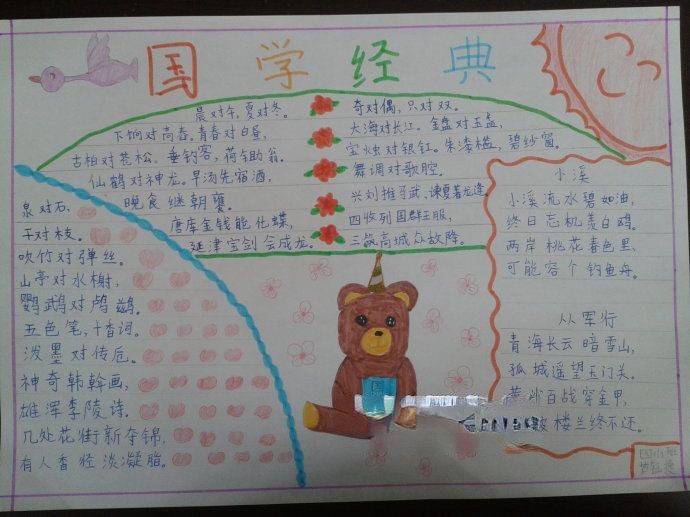 国学经典
晨对午,夏对冬。
下晌对高舂。青春对白昼,
古柏对苍松。垂钓客,荷锄翁。
仙鹤对神龙。旱汤先宿酒,
晚食继朝饔。
唐库金钱能化蝶,
延津宝剑会成龙。
奇对偶,只对双。
大海对长江。金盘对玉盏,
宝烛对银釭。朱漆槛,碧纱窗。
舞调对歌腔。
兴刘推马武,谏夏著龙逄。
四收列国群王服,
三筑高城众敌降。
泉对石,
干对枝。
吹竹对弹丝。
山亭对水榭,
鹦鹉对鸬鹚。
五色笔,十香词。
泼墨对传卮。
神奇韩幹画,
雄浑李陵诗。
几处花街新夺锦,
有人香径淡凝脂。
小溪
小溪流水碧如油,
终日忘机羡白鸥。
两岸桃花春色里,
可能容个钓鱼舟。
从军行
青海长云暗雪山,
孤城遥望玉门关。
沙百战穿金甲,
楼兰终不还。